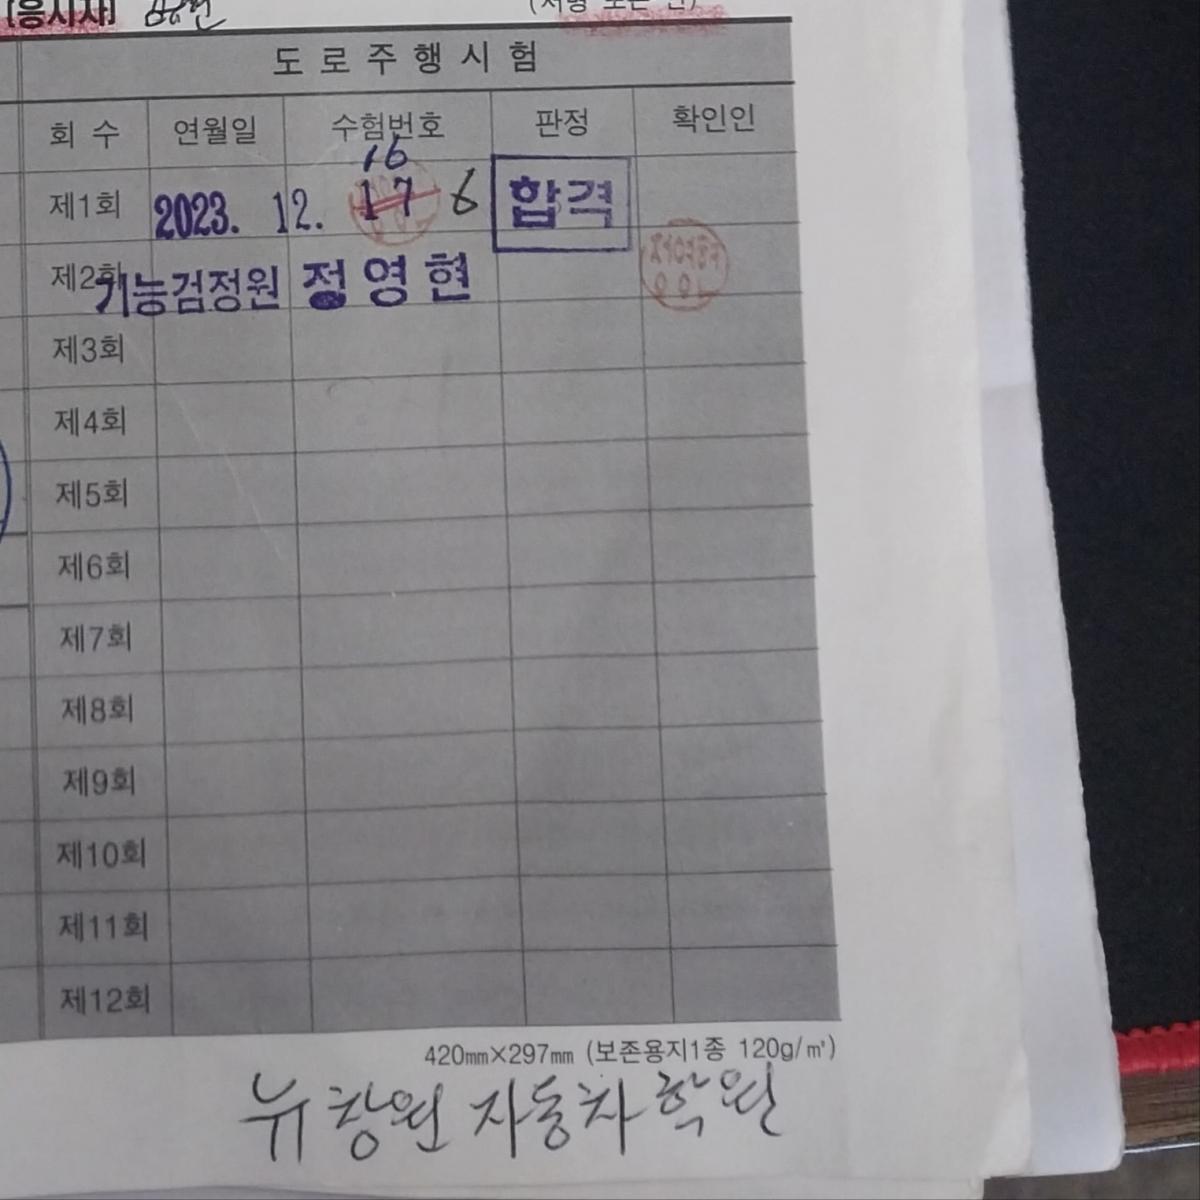 [응시자]
(서명 또는 인)
도로주행시험
회 수 연월일 수험번호 판정 확인인
16
제1회 2023. 12. 17 6 합격
제2회 기능검정원 정영현
제3회
제4회
제5회
제6회
제7회
제8회
제9회
제10회
제11회
제12회
420mm×297mm (보존용지1종 120g/㎡)
뉴창원자동차학원